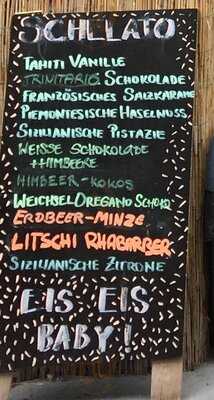 SCHLLATO
TAHITI VANILLE
TRINITARIO SCHOKOLADE
FRANZÖSISCHES SALZKARAMEL
PIEMONTESISCHE HASELNUSS
SIZILIANISCHE PISTAZIE
WEISSE SCHOKOLADE
+HIMBEERE
HIMBEER-KOKOS
WEICHSEL OREGANO SCHOKO
ERDBEER-MINZE
LITSCHI RHABARBER
SIZILIANISCHE ZITRONE
EIS EIS
BABY!